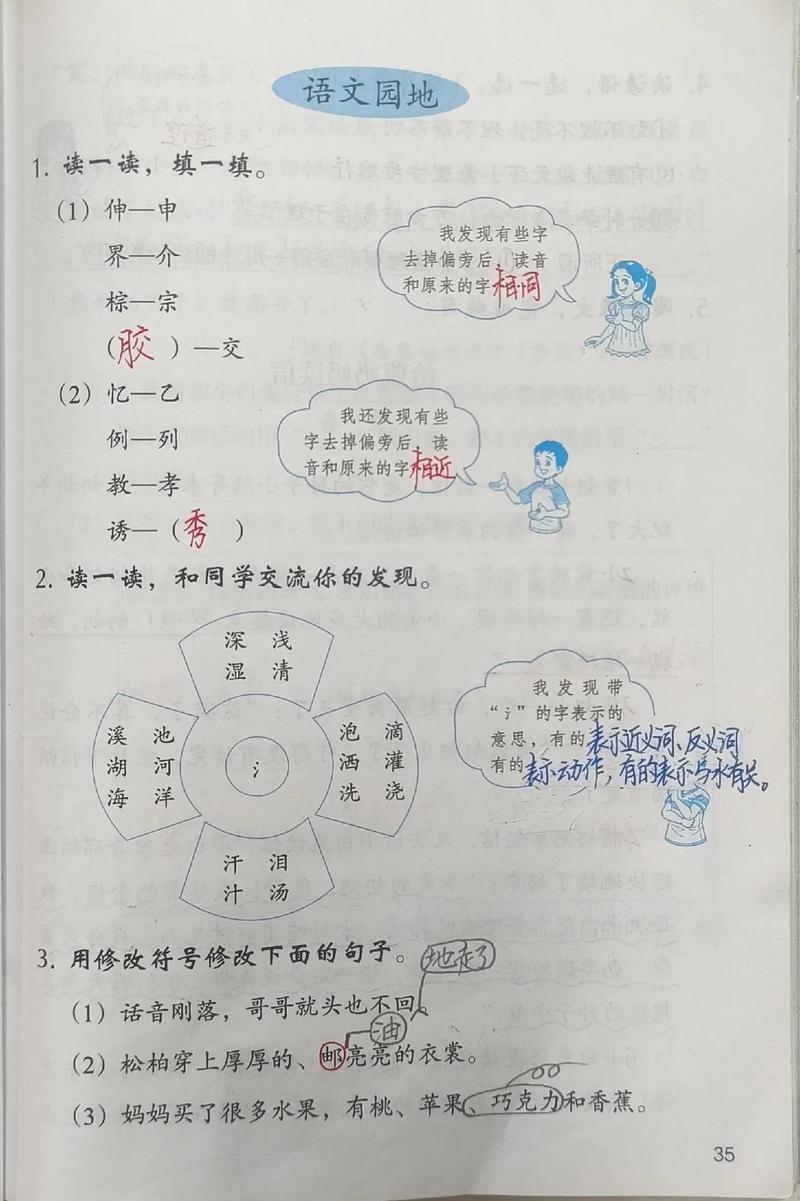 语文园地
1. 读一读，填一填。
(1) 伸—申
界—介
棕—宗
(胶)—交
我发现有些字
去掉偏旁后，读音
和原来的字相同
(2) 忆—乙
例—列
教—孝
诱—(秀)
我还发现有些
字去掉偏旁后，读
音和原来的字相近
2. 读一读，和同学交流你的发现。
深 浅
湿 清
溪 池
湖 河
海 洋
氵
泡 滴
洒 灌
洗 浇
汗 泪
汁 汤
我发现带
“氵”的字表示的
意思，有的表示近义词、反义词
有的表示动作，有的表示与水有关。
3. 用修改符号修改下面的句子。
地走了
(1) 话音刚落，哥哥就头也不回。
油
(2) 松柏穿上厚厚的、邮亮亮的衣裳。
(3) 妈妈买了很多水果，有桃、苹果、巧克力和香蕉。
35